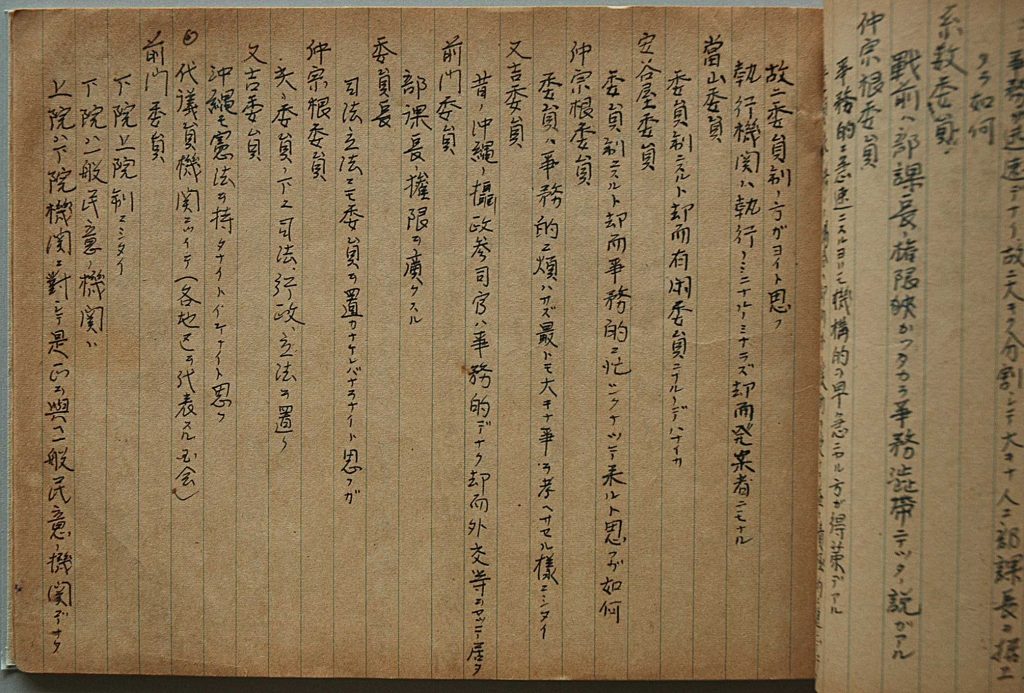 事務ガ迅速デナイ、故ニ大キク分割シテ大キナ人ニ部課長ニ据エ
タラ如何
糸数委員
戦前ハ部課長ノ権限狭カッタカラ事務渋帯デッタノ説ガアル
仲宗根委員
事務的ニ急速ニスルヨリモ機構的ニ早急ニスル方ガ得策デアル
故ニ委員制ノ方ガヨイト思フ
執行機関ハ執行ノミニナルノミナラズ却而発案者ニモナル
當山委員
委員制ニスルト却而有閑委員ニナルノデハナイカ
安谷屋委員
委員制ニスルト却而事務的ニ忙シクナッテ来ルト思フガ如何
仲宗根委員
委員ハ事務的ニ煩ハサズ最トモ大キナ事ヲ考ヘサセル様ニシタイ
又吉委員
昔ノ沖縄ノ攝政参司官ハ事務的デナク却而外交等ヲヤッテ居タ
前門委員
部課長権限ヲ廣クスル
委員長
司法立法ニモ委員ヲ置カナケレバナラナイト思フガ
仲宗根委員
矢ノ委員ノ下ニ司法、行政、立法ヲ置ク
又吉委員
沖縄モ憲法ヲ持タナイトイケナイト思フ
代議員機関ニツイテ(各地区ヲ代表スル玄会)
前門委員
下院上院制ニシタイ
下院ハ一般民意ノ機関ハ
上院ハ下院機関ニ對シテ是正ヲ與ヘ一般民意ノ機関デナク